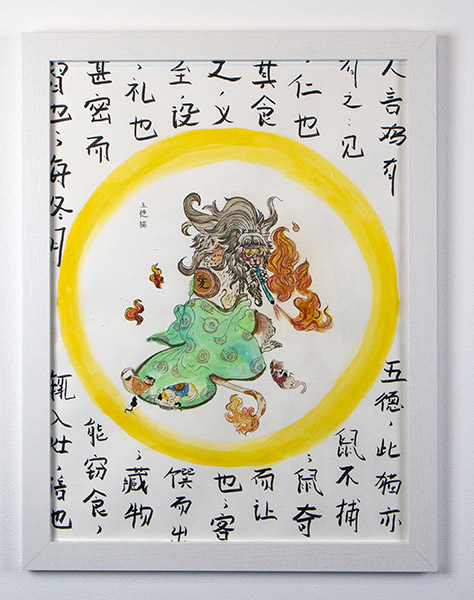 人言鸡有五德，此猫亦
有之：见鼠不捕
，仁也；鼠夺
其食而让
之，义也，客
至，设馔而出
，礼也，藏物
甚密而能窃食，
也，每冬月入
五德猫